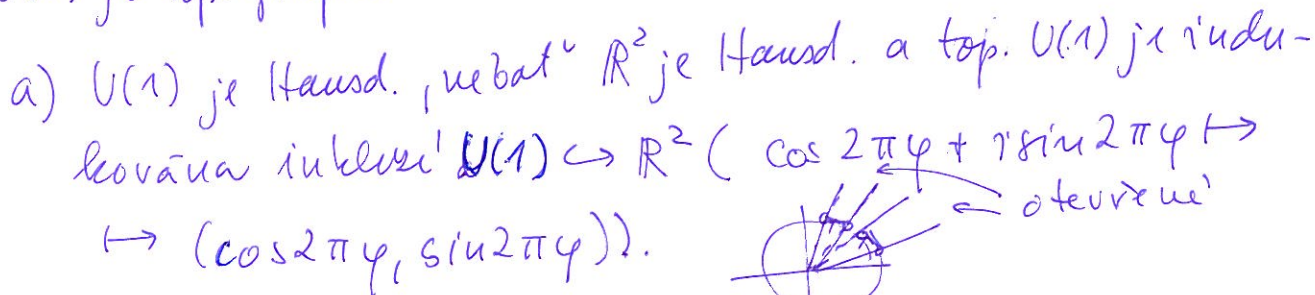 a) U(1) je Hausd., neboť ℝ² je Hausd. a top. U(1) je indu-
kována inkluzí U(1) ↪ ℝ² ( cos 2πφ + i sin 2πφ ↦
↦ (cos2πφ, sin2πφ)).
← otevřené